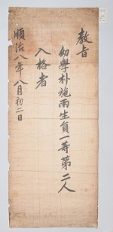 教旨
幼學朴炮雨生員一等第二人
入格者
順治八年八月初二日